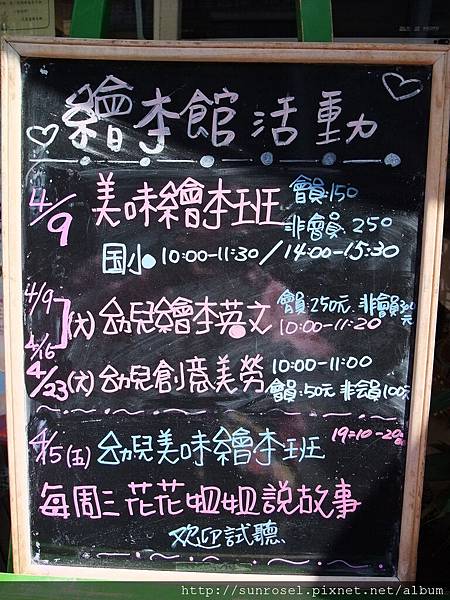 繪本館活動
4/9 美味繪本班 會員:150
非會員:250
国小 10:00-11:30/14:00-15:30
4/9
4/16 (六)幼兒繪本英文 會員:250元 非會員300元
10:00-11:20
4/23(六)幼兒創意美勞 10:00-11:00
會員:50元 非会員100元
4/15(五)幼兒美味繪本班 19=10-20=
每周三花花姐姐説故事
欢迎試聽
http://sunrosel.pixnet.net/album